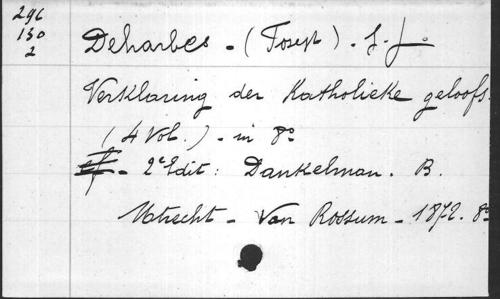 296
150
2
Deharbes - (Joseph). S. J.
Verklaring der Katholieke geloofs.
(4 Vol.) - in 8°
ef. - 2e Edit: Dankelman. B.
Utrecht - Van Rossum - 1872. 8°